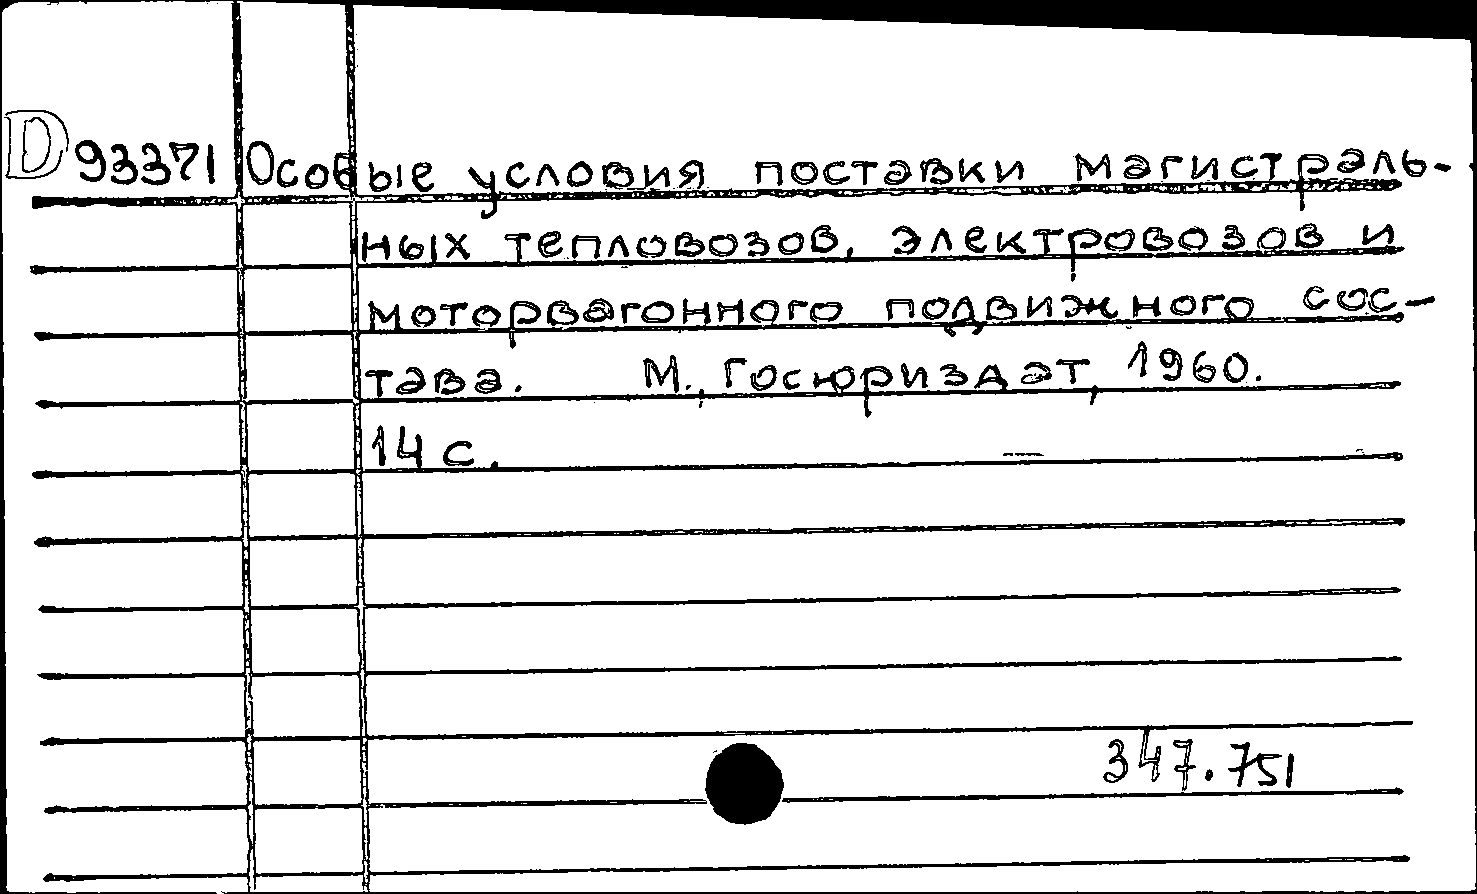 D 93371 Особые условия поставки магистраль-
ных тепловозов, электровозов и
моторвагонного подвижного сос-
тава. М., Госюриздат, 1960.
14 с.
347.751